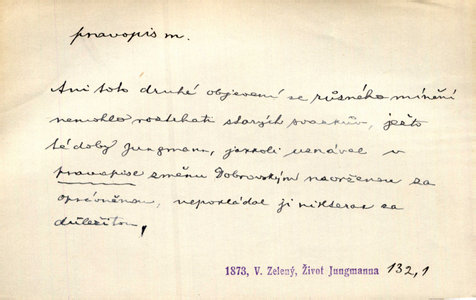 pravopis m.
Ani toto druhé objevení se různého mínění
nemohlo roztrhati starých svazkův, ješto
tédoby Jungmann, jakkoli uznával v
pravopise změnu Dobrovským navrženou za
oprávněnou, nepokládal ji nikterak za
důležitou,
1873, V. Zelený, Život Jungmanna 132,1